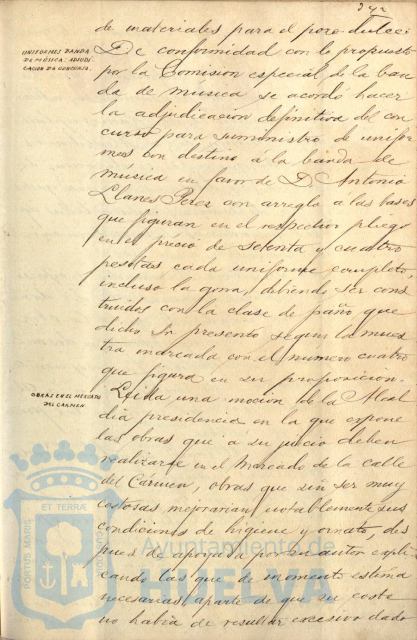 de materiales para el pozo dulce.
UNIFORMES BANDA
DE MÚSICA: ADJUDI
CACIÓN DE CONCURSO.
De conformidad con lo propuesto
por la Comision especial de la ban
da de musica se acordó hacer
la adjudicacion definitiva del con
curso para suministro de unifor
mes con destino a la banda de
música en favor de D. Antonio
Llanes Perez con arreglo a las bases
que figuran en el respectivo pliego
en el precio de setenta y cuatro
pesetas cada uniforme completo,
incluso la gorra, debiendo ser cons
truidos con la clase de paño que
dicho Sr presentó segun la mues
tra marcada con el numero cuatro
que figura en su proposicion.
OBRAS EN EL MERCADO
DEL CARMEN
Leida una mocion de la Alcal
dia presidencia en la que expone
las obras que a su juicio deben
realizarse en el Mercado de la calle
del Carmen, obras que sin ser muy
costosas mejorarian notablemente sus
condiciones de higiene y ornato, des
pues de apoyada por su autor expli
cando las que de momento estima
necesarias, aparte de que su coste
no habia de resultar excesivo dado
PORTUS MARIS ET TERRAE CUSTODIA
Ayuntamiento de
HUELVA